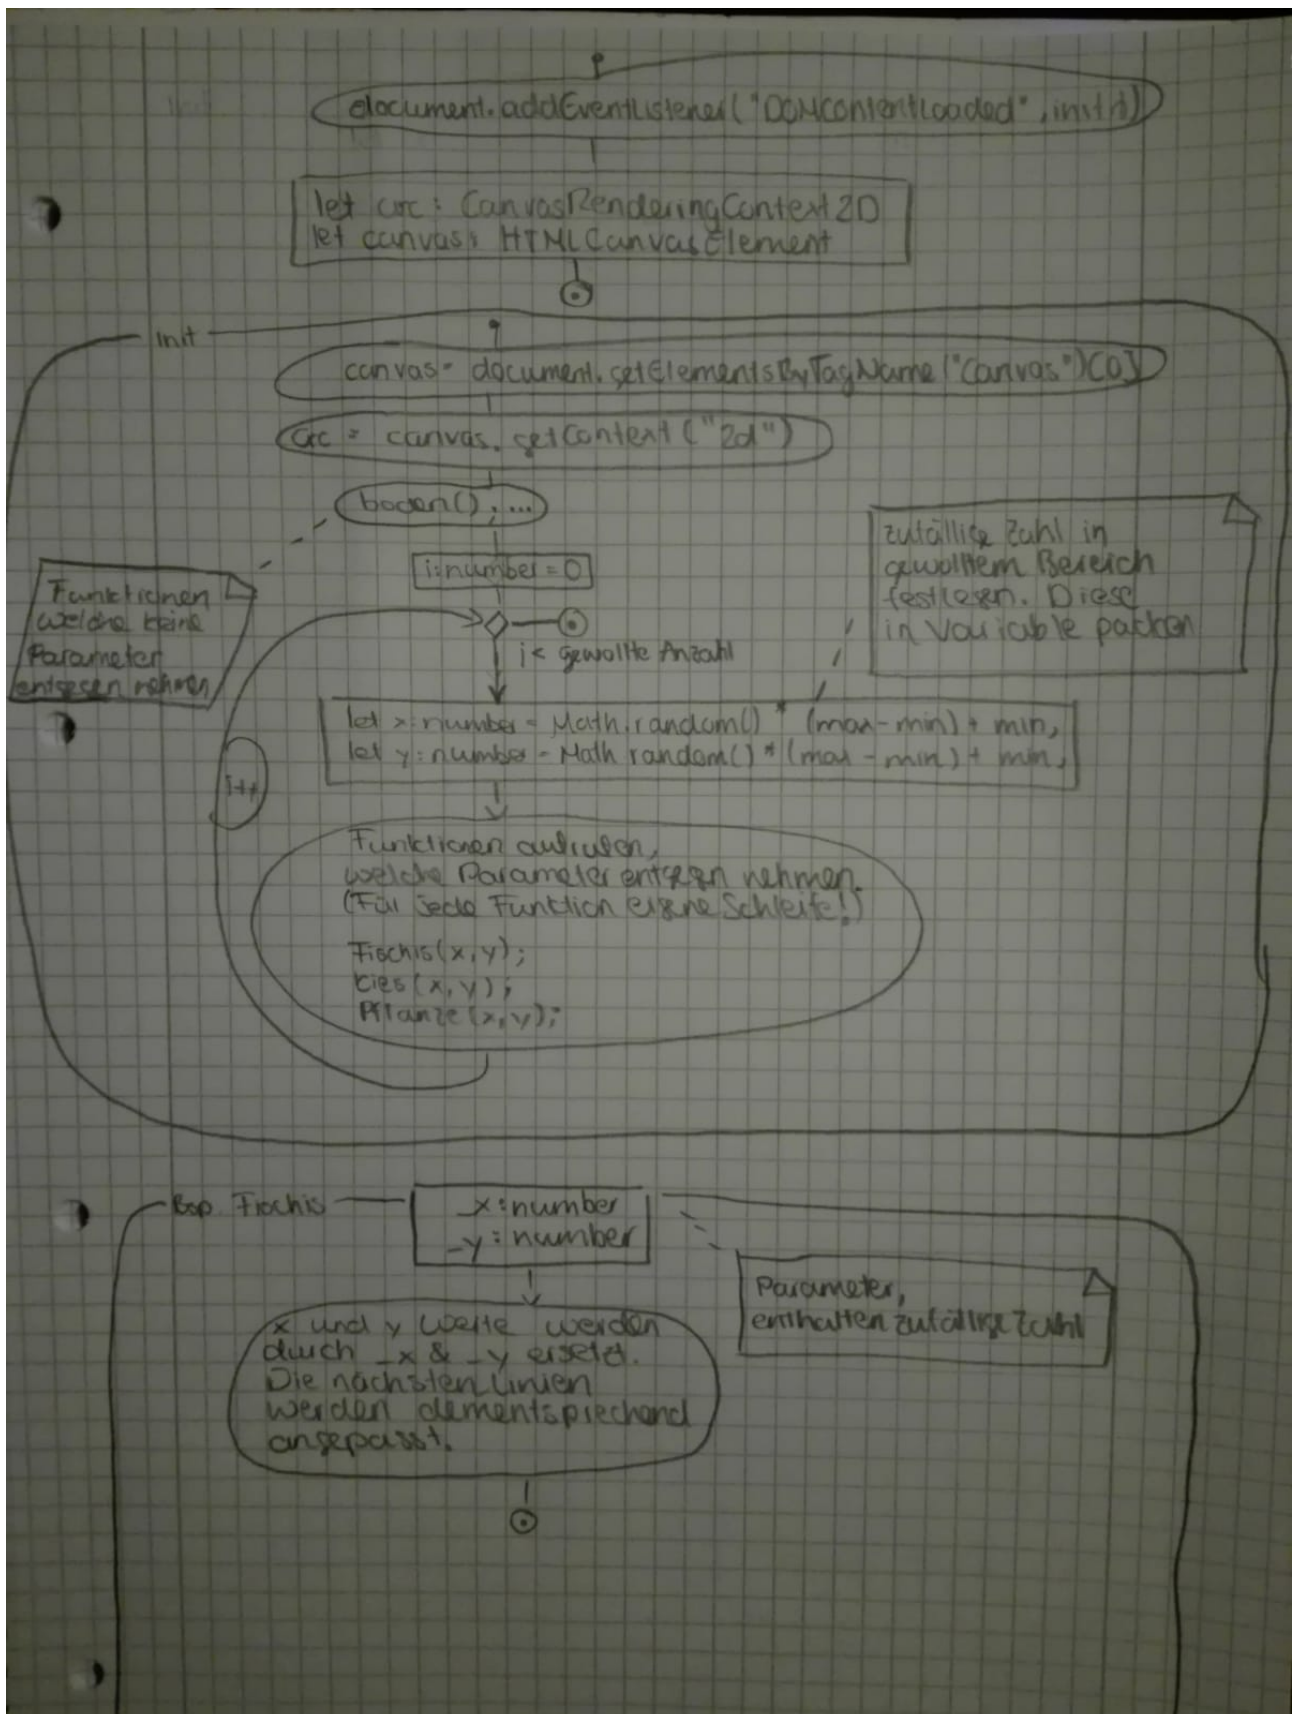 document.addEventListener("DOMContentLoaded", init)
let crc: CanvasRenderingContext2D
let canvas: HTMLCanvasElement
Init
canvas= document.getElementsByTagName("Canvas")[0]
crc = canvas.getContext("2d")
boden(), ...
i:number = 0
zufällige Zahl in
gewolltem Bereich
festlegen. Diese
in Variable packen
Funktionen
welche keine
Parameter
entgegen nehmen
i< gewollte Anzahl
let x:number = Math.random() * (max-min) + min,
let y:number = Math random() * (max - min) + min,
i++
Funktionen aufrufen,
welche Parameter entgegen nehmen.
(Für jede Funktion eigene Schleife!)
Fischis(x,y);
Kies(x,y);
Pflanze(x,y);
Bsp. Fischis
_x:number
_y:number
Parameter,
enthalten zufällige Zahl
x und y Werte werden
durch _x & _y ersetzt.
Die nächsten Linien
werden dementsprechend
angepasst.